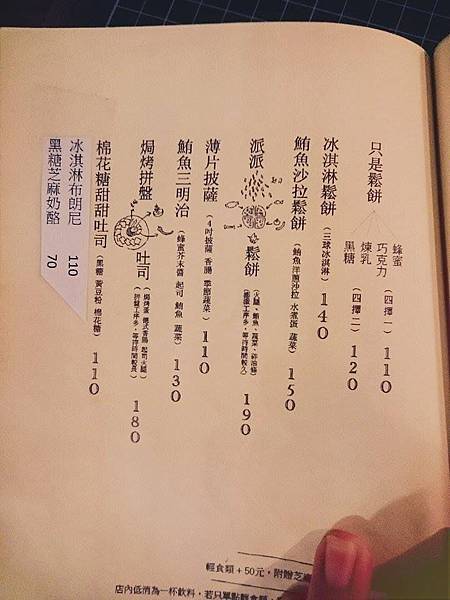 只是鬆餅
蜂蜜
巧克力 (四擇一) 110
煉乳
黑糖 (四擇二) 120
冰淇淋鬆餅 (三球冰淇淋) 140
鮪魚沙拉鬆餅 (鮪魚洋蔥沙拉 水煮蛋 蔬菜) 150
派派鬆餅 190
(等待時間較久)
薄片披薩 (4吋披薩 香腸 季節蔬菜) 110
鮪魚三明治 (蜂蜜芥末醬 起司 鮪魚 蔬菜) 130
焗烤拼盤吐司 180
(拼盤工序多,等待時間較長)
棉花糖甜甜吐司 (黑糖 黃豆粉 棉花糖) 110
冰淇淋布朗尼 110
黑糖芝麻奶酪 70
輕食類+50元,附贈芝麻
店內低消為一杯飲料,若只單點輕食類,